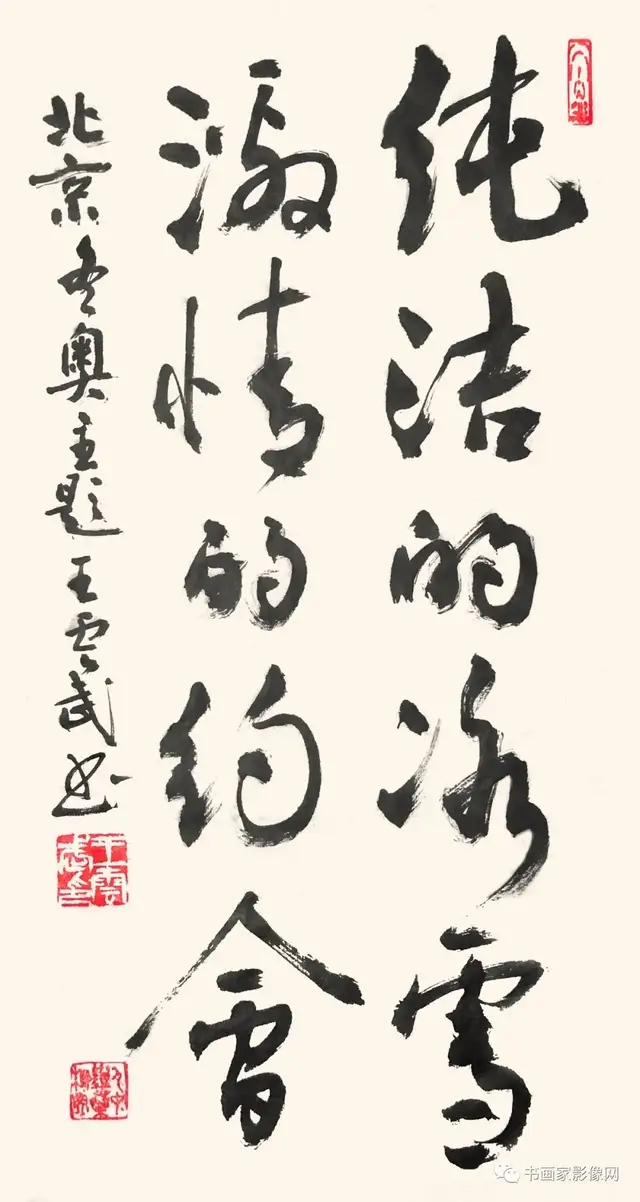 纯洁的冰雪
激情的约会
北京冬奥主题王云武书
王雲武印
书画家影像网